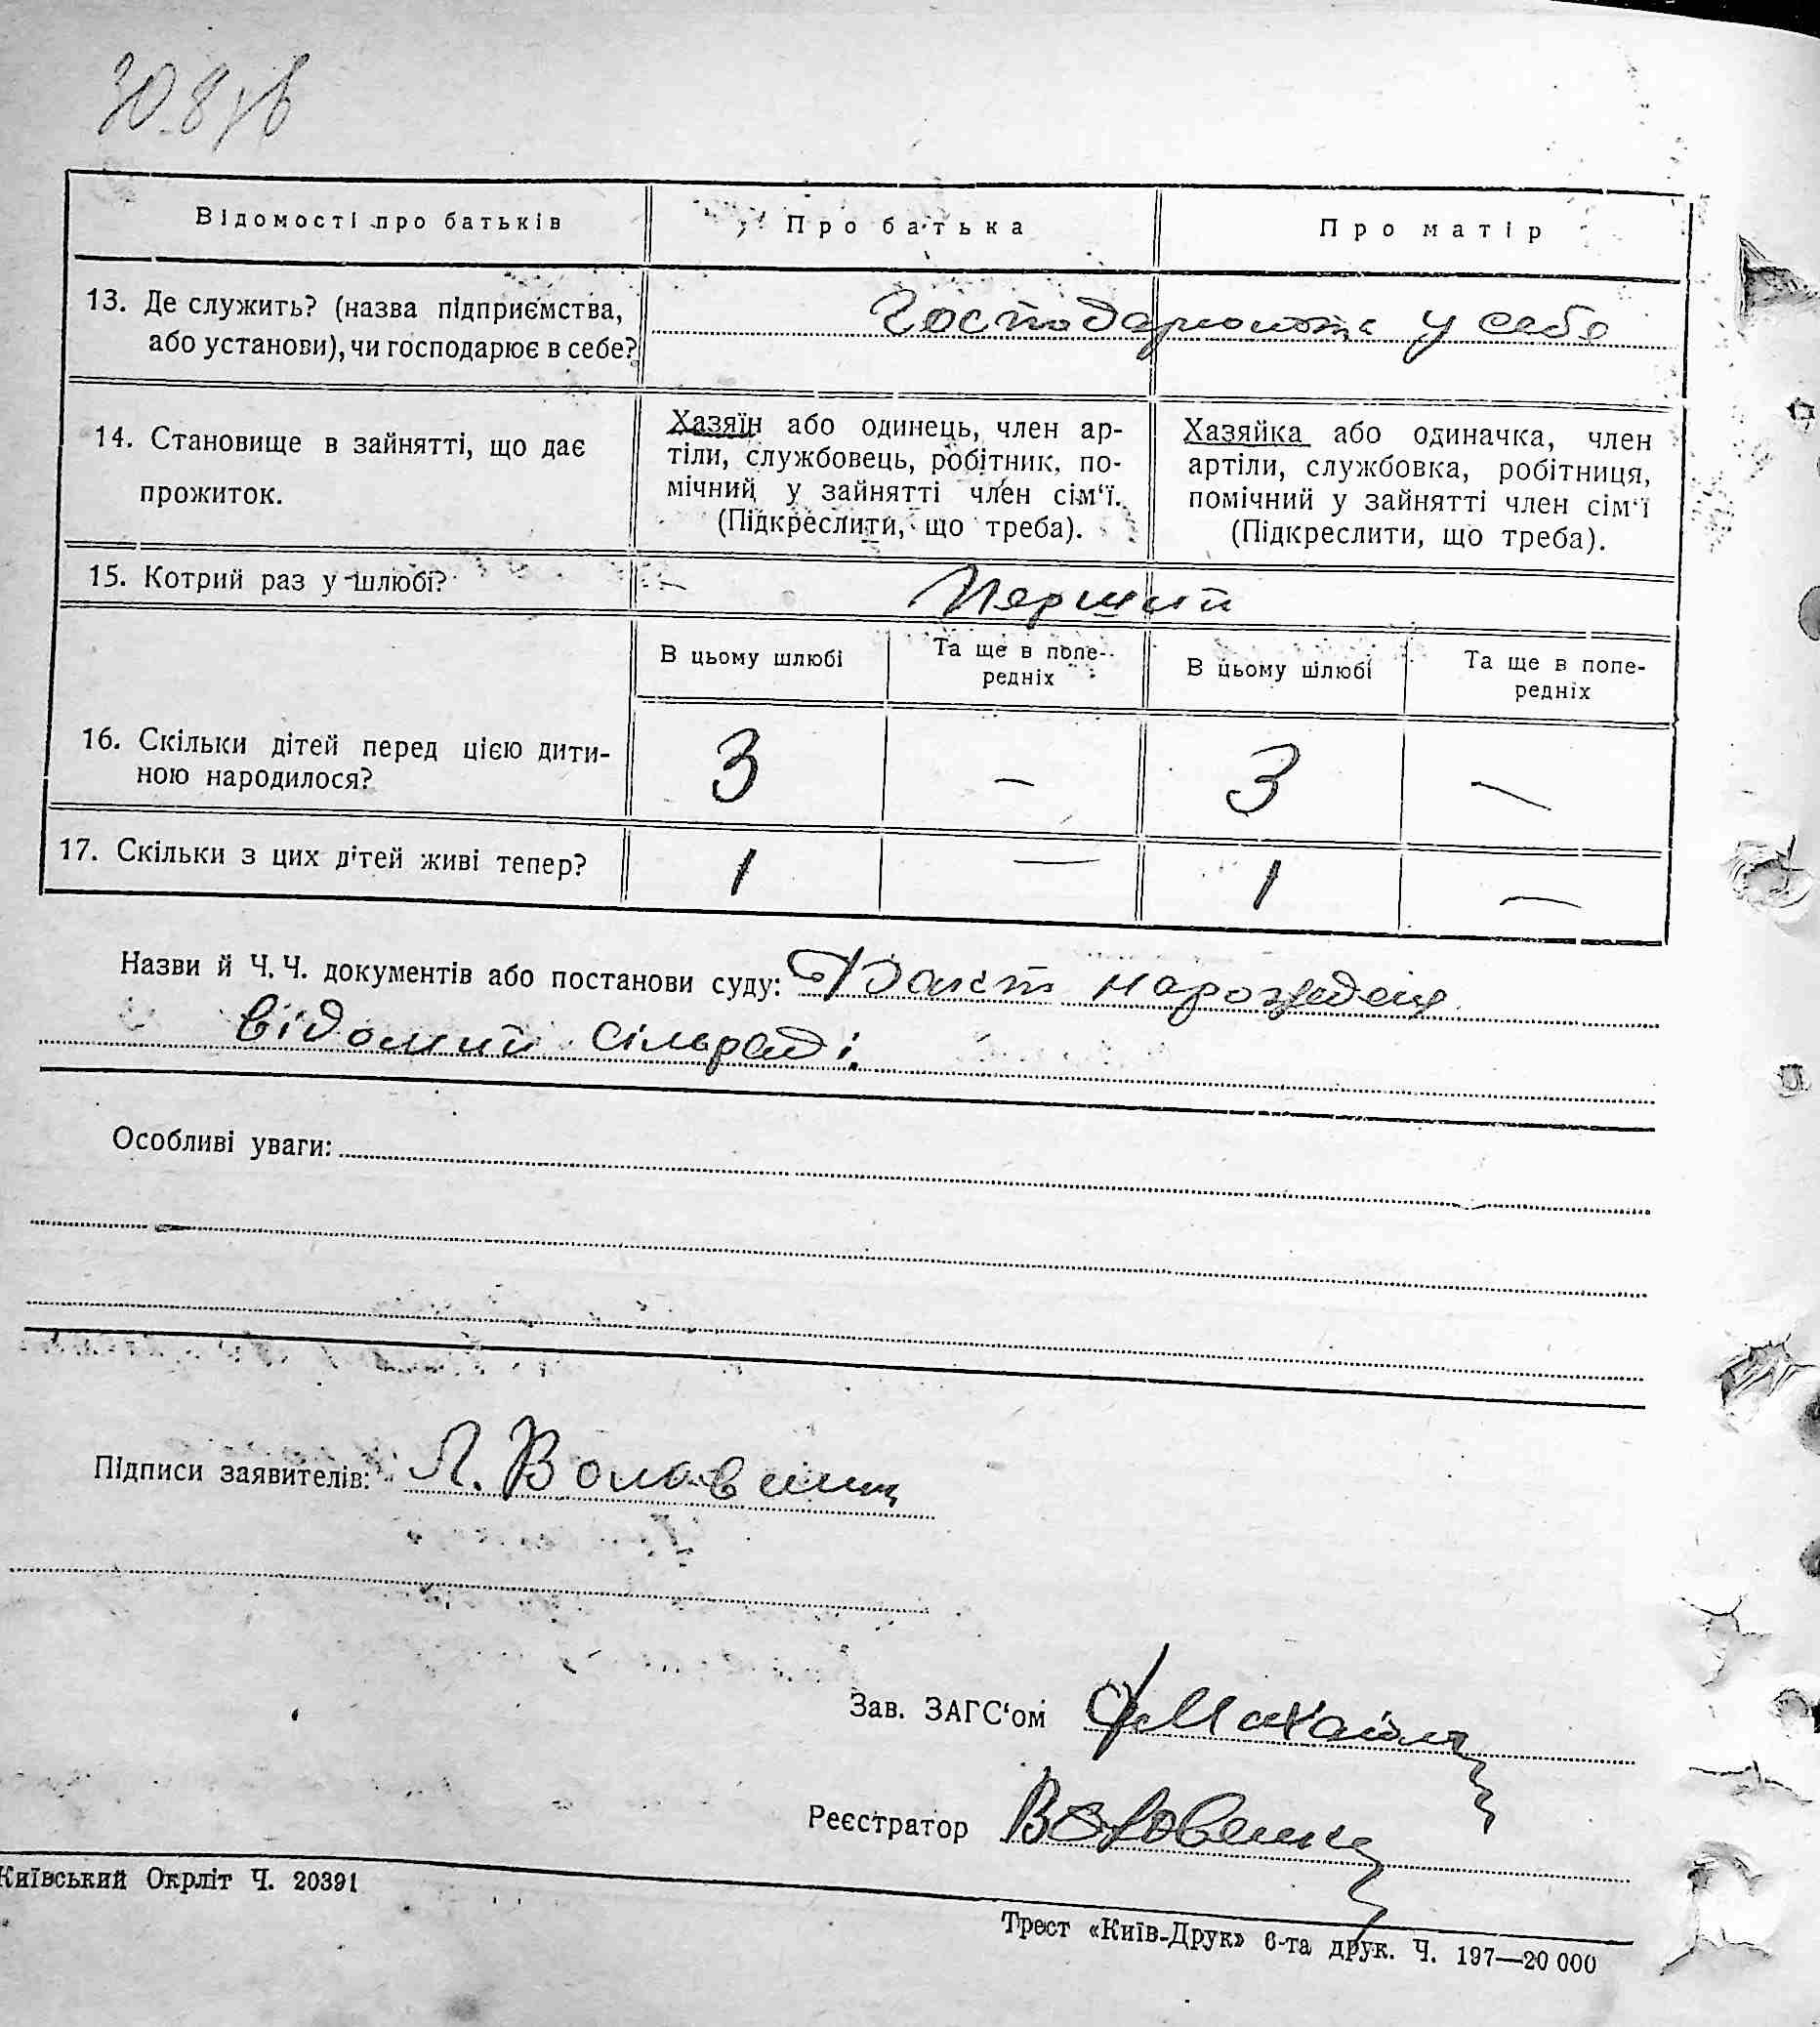 Відомості про батьків
Про батька
Про матір
13. Де служить? (назва підприємства,
або установи), чи господарює в себе?
Господарюють у себе
14. Становище в зайнятті, що дає
прожиток.
Хазяїн або одинець, член ар-
тіли, службовець, робітник, по-
мічний у зайнятті член сім‘ї.
(Підкреслити, що треба).
Хазяйка або одиначка, член
артіли, службовка, робітниця,
помічний у зайнятті член сім‘ї
(Підкреслити, що треба).
15. Котрий раз у шлюбі?
— Перший
В цьому шлюбі
Та ще в попе-
редніх
В цьому шлюбі
Та ще в попе-
редніх
16. Скільки дітей перед цією дити-
ною народилося?
3 — 3 —
17. Скільки з цих дітей живі тепер?
1 — 1 —
Назви й Ч. Ч. документів або постанови суду: Факт народження
відомий сільраді.
Особливі уваги:
Підписи заявителів:
Зав. ЗАГС‘ом
Реєстратор
Київський Окрліт Ч. 20391
Трест «Київ-Друк» 6-та друк. Ч. 197—20 000